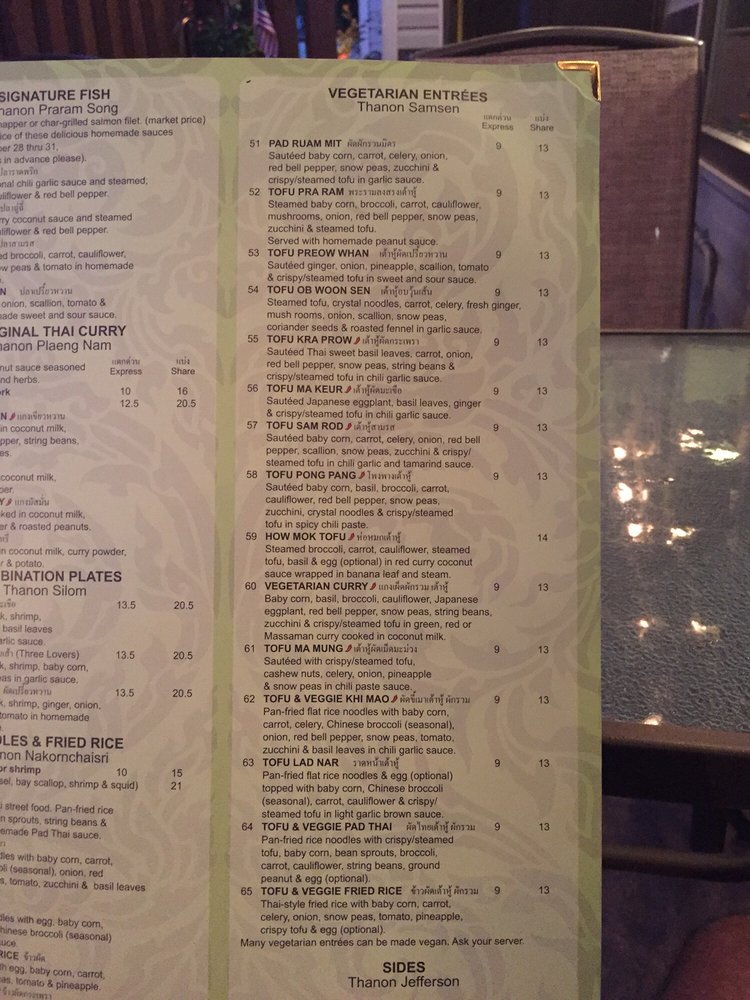 SIGNATURE FISH
Thanon Praram Song
napper or char-grilled salmon filet. (market price)
ice of these delicious homemade sauces
ber 28 thru 31,
s in advance please).
onal chili garlic sauce and steamed,
uliflower & red bell pepper.
rry coconut sauce and steamed
uliflower & red bell pepper.
ปลาสามรส
ed broccoli, carrot, cauliflower,
ow peas & tomato in homemade
ปลาเปรี้ยวหวาน
onion, scallion, tomato &
made sweet and sour sauce.
GINAL THAI CURRY
hanon Plaeng Nam
แดกด่วน แบ่ง
Express Share
nut sauce seasoned
nd herbs.
ork 10 16
12.5 20.5
N แกงเขียวหวาน
in coconut milk,
pper, string beans,
es.
coconut milk,
per.
Y แกงมัสมั่น
ked in coconut milk,
er & roasted peanuts.
in coconut milk, curry powder,
r & potato.
BINATION PLATES
Thanon Silom
13.5 20.5
k, shrimp,
basil leaves
arlic sauce.
(Three Lovers) 13.5 20.5
k, shrimp, baby corn,
eas in garlic sauce.
ผัดเปรี้ยวหวาน 13.5 20.5
k, shrimp, ginger, onion,
tomato in homemade
DLES & FRIED RICE
non Nakornchaisri
or shrimp 10 15
sel, bay scallop, shrimp & squid) 21
i street food. Pan-fried rice
n sprouts, string beans &
emade Pad Thai sauce.
dles with baby corn, carrot,
oli (seasonal), onion, red
s, tomato, zucchini & basil leaves
dles with egg, baby corn,
hinese broccoli (seasonal)
uce.
RICE ข้าวผัด
th egg, baby corn, carrot,
eas, tomato & pineapple.
ข้าวผัดกระเพรา
VEGETARIAN ENTRÉES
Thanon Samsen
แดกด่วน แบ่ง
Express Share
51 PAD RUAM MIT ผัดผักรวมมิตร 9 13
Sautéed baby corn, carrot, celery, onion,
red bell pepper, snow peas, zucchini &
crispy/steamed tofu in garlic sauce.
52 TOFU PRA RAM พระรามลงสรงเต้าหู้ 9 13
Steamed baby corn, broccoli, carrot, cauliflower,
mushrooms, onion, red bell pepper, snow peas,
zucchini & steamed tofu.
Served with homemade peanut sauce.
53 TOFU PREOW WHAN เต้าหู้ผัดเปรี้ยวหวาน 9 13
Sautéed ginger, onion, pineapple, scallion, tomato
& crispy/steamed tofu in sweet and sour sauce.
54 TOFU OB WOON SEN เต้าหู้อบวุ้นเส้น 9 13
Steamed tofu, crystal noodles, carrot, celery, fresh ginger,
mush rooms, onion, scallion, snow peas,
coriander seeds & roasted fennel in garlic sauce.
55 TOFU KRA PROW เต้าหู้ผัดกระเพรา 9 13
Sautéed Thai sweet basil leaves, carrot, onion,
red bell pepper, snow peas, string beans &
crispy/steamed tofu in chili garlic sauce.
56 TOFU MA KEUR เต้าหู้ผัดมะเขือ 9 13
Sautéed Japanese eggplant, basil leaves, ginger
& crispy/steamed tofu in chili garlic sauce.
57 TOFU SAM ROD เต้าหู้สามรส 9 13
Sautéed baby corn, carrot, celery, onion, red bell
pepper, scallion, snow peas, zucchini & crispy/
steamed tofu in chili garlic and tamarind sauce.
58 TOFU PONG PANG โพงพางเต้าหู้ 9 13
Sautéed baby corn, basil, broccoli, carrot,
cauliflower, red bell pepper, snow peas,
zucchini, crystal noodles & crispy/steamed
tofu in spicy chili paste.
59 HOW MOK TOFU ห่อหมกเต้าหู้ 14
Steamed broccoli, carrot, cauliflower, steamed
tofu, basil & egg (optional) in red curry coconut
sauce wrapped in banana leaf and steam.
60 VEGETARIAN CURRY แกงเผ็ดผักรวม เต้าหู้ 9 13
Baby corn, basil, broccoli, cauliflower, Japanese
eggplant, red bell pepper, snow peas, string beans,
zucchini & crispy/steamed tofu in green, red or
Massaman curry cooked in coconut milk.
61 TOFU MA MUNG เต้าหู้ผัดเม็ดมะม่วง 9 13
Sautéed with crispy/steamed tofu,
cashew nuts, celery, onion, pineapple
& snow peas in chili paste sauce.
62 TOFU & VEGGIE KHI MAO ผัดขี้เมาเต้าหู้ ผักรวม 9 13
Pan-fried flat rice noodles with baby corn,
carrot, celery, Chinese broccoli (seasonal),
onion, red bell pepper, snow peas, tomato,
zucchini & basil leaves in chili garlic sauce.
63 TOFU LAD NAR ราดหน้าเต้าหู้ 9 13
Pan-fried flat rice noodles & egg (optional)
topped with baby corn, Chinese broccoli
(seasonal), carrot, cauliflower & crispy/
steamed tofu in light garlic brown sauce.
64 TOFU & VEGGIE PAD THAI ผัดไทยเต้าหู้ ผักรวม 9 13
Pan-fried rice noodles with crispy/steamed
tofu, baby corn, bean sprouts, broccoli,
carrot, cauliflower, string beans, ground
peanut & egg (optional).
65 TOFU & VEGGIE FRIED RICE ข้าวผัดเต้าหู้ ผักรวม 9 13
Thai-style fried rice with baby corn, carrot,
celery, onion, snow peas, tomato, pineapple,
crispy tofu & egg (optional).
Many vegetarian entrées can be made vegan. Ask your server.
SIDES
Thanon Jefferson